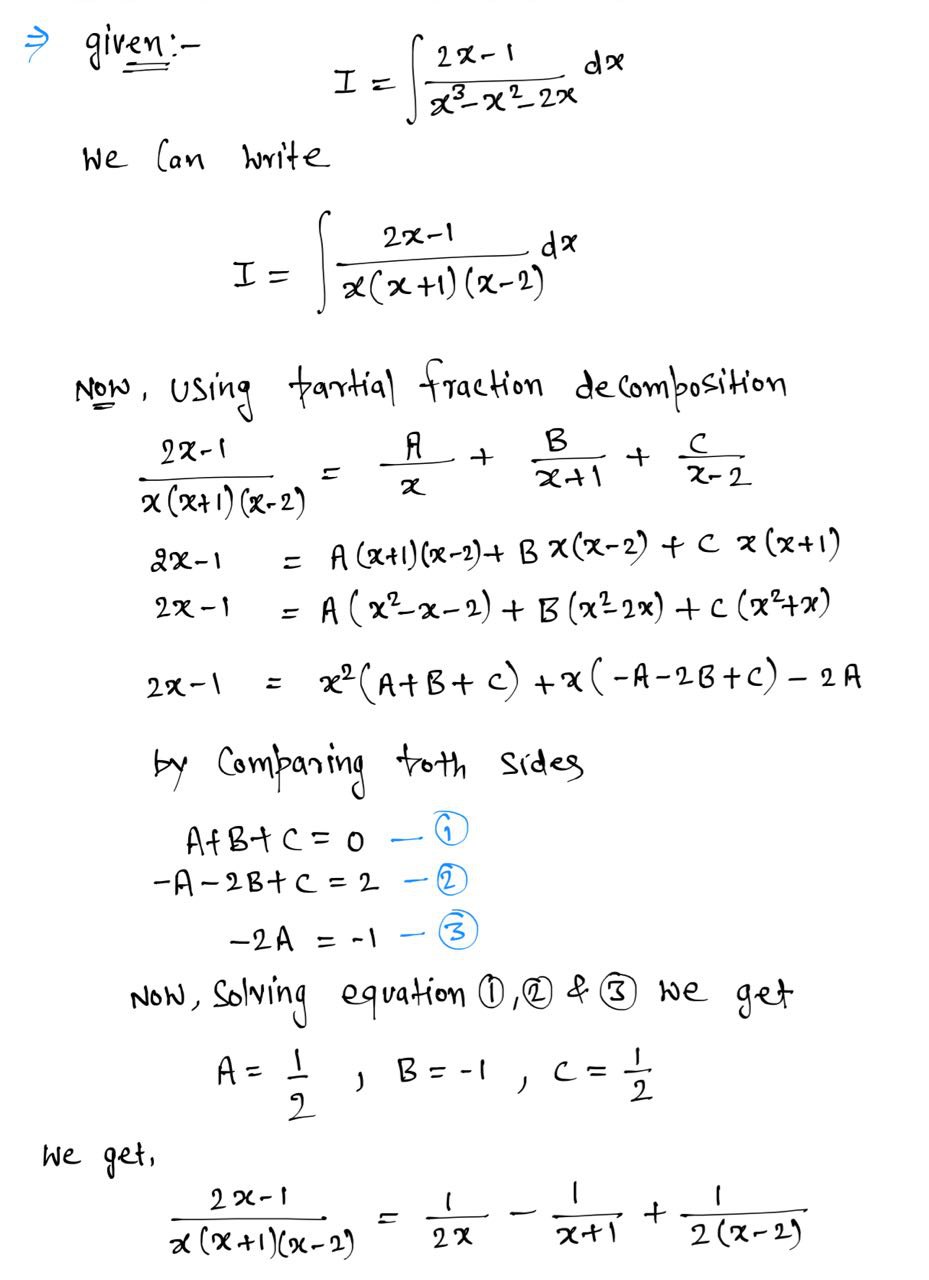 ⇒ given:-
I = ∫ (2x-1)/(x³-x²-2x) dx
We Can write
I = ∫ (2x-1)/(x(x+1)(x-2)) dx
Now, Using partial fraction decomposition
(2x-1)/(x(x+1)(x-2)) = A/x + B/(x+1) + C/(x-2)
2x-1 = A(x+1)(x-2) + B x(x-2) + C x(x+1)
2x-1 = A(x²-x-2) + B(x²-2x) + C(x²+x)
2x-1 = x²(A+B+C) + x(-A-2B+C) - 2A
by Comparing both sides
A+B+C = 0 — ①
-A-2B+C = 2 — ②
-2A = -1 — ③
Now, Solving equation ①,② & ③ we get
A = 1/2 , B = -1 , C = 1/2
We get,
(2x-1)/(x(x+1)(x-2)) = 1/(2x) - 1/(x+1) + 1/(2(x-2))